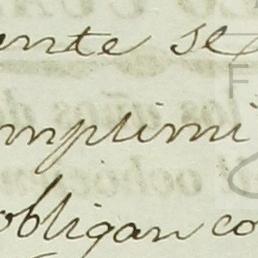 ante se
mplimi
obligan co